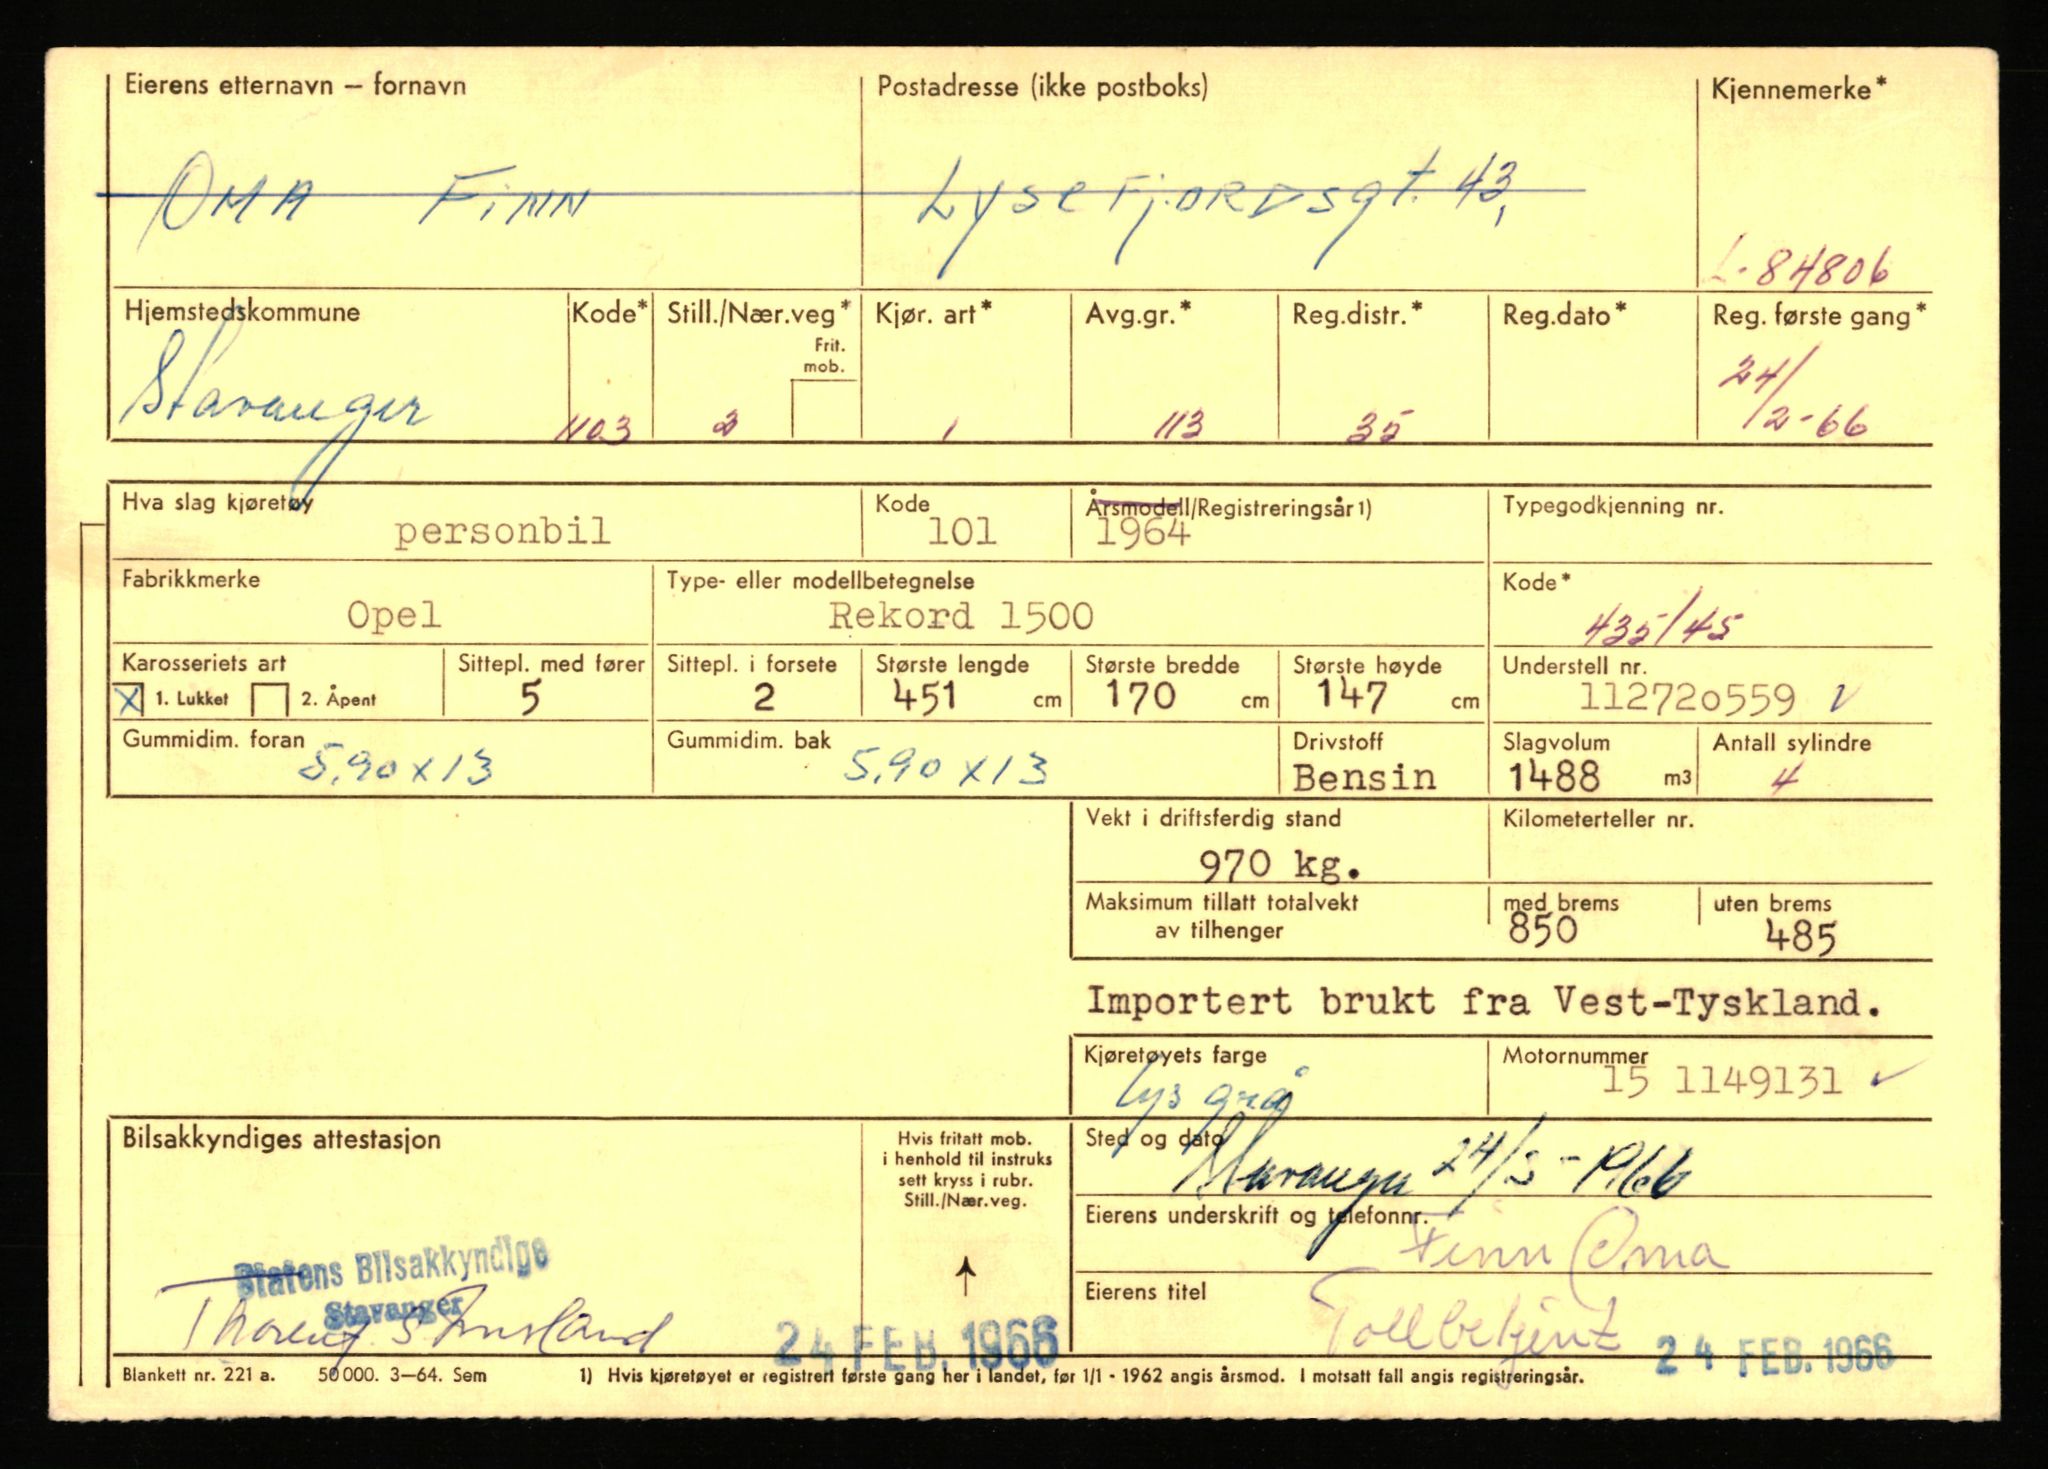 Eierens etternavn – fornavn Postadresse (ikke postboks) Kjennemerke*
OMA FINN Lysefjordsgt. 43,
L-84806
Hjemstedskommune Kode* Still./Nær.veg* Kjør. art* Avg.gr.* Reg.distr.* Reg.dato* Reg. første gang*
Frit. mob.
Stavanger 1103 2 1 113 35 24/2-66
Hva slag kjøretøy Kode Årsmodell/Registreringsår 1) Typegodkjenning nr.
personbil 101 1964
Fabrikkmerke Type- eller modellbetegnelse Kode*
Opel Rekord 1500 435/45
Karosseriets art Sittepl. med fører Sittepl. i forsete Største lengde Største bredde Største høyde Understell nr.
X 1. Lukket 2. Åpent 5 2 451 cm 170 cm 147 cm 112720559 ✓
Gummidim. foran Gummidim. bak Drivstoff Slagvolum Antall sylindre
5,90 x 13 5,90 x 13 Bensin 1488 m3 4
Vekt i driftsferdig stand Kilometerteller nr.
970 kg.
Maksimum tillatt totalvekt med brems uten brems
av tilhenger 850 485
Importert brukt fra Vest-Tyskland.
Kjøretøyets farge Motornummer
lys grå 15 1149131 ✓
Bilsakkyndiges attestasjon
Hvis fritatt mob.
i henhold til instruks
sett kryss i rubr.
Still./Nær.veg.
Sted og dato
Stavanger 24/2-1966
Eierens underskrift og telefonnr.
Finn Oma
Statens Bilsakkyndige
Stavanger
Eierens titel
Tollbetjent
24 FEB. 1966 24 FEB. 1966
Blankett nr. 221 a. 50 000. 3–64. Sem 1) Hvis kjøretøyet er registrert første gang her i landet, før 1/1 - 1962 angis årsmod. I motsatt fall angis registreringsår.